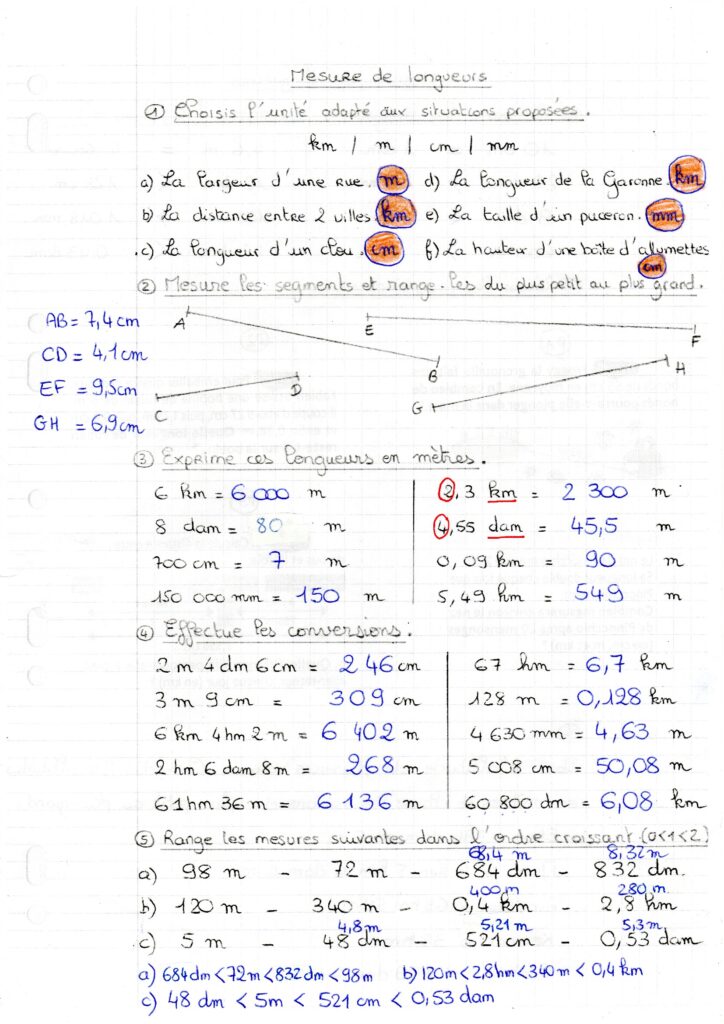 Mesure de longueurs
① Choisis l'unité adapté aux situations proposées.
km / m / cm / mm
a) La largeur d'une rue. m d) La longueur de la Garonne. km
b) La distance entre 2 villes km e) La taille d'un puceron. mm
c) La longueur d'un clou. cm f) La hauteur d'une boîte d'allumettes
cm
② Mesure les segments et range-les du plus petit au plus grand.
AB = 7,4 cm
CD = 4,1 cm
EF = 9,5 cm
GH = 6,9 cm
A B
C D
E F
G H
③ Exprime ces longueurs en mètres.
6 km = 6 000 m
8 dam = 80 m
700 cm = 7 m
150 000 mm = 150 m
2,3 km = 2 300 m
4,55 dam = 45,5 m
0,09 km = 90 m
5,49 hm = 549 m
④ Effectue les conversions :
2 m 4 dm 6 cm = 246 cm
3 m 9 cm = 309 cm
6 km 4 hm 2 m = 6 402 m
2 hm 6 dam 8 m = 268 m
61 hm 36 m = 6 136 m
67 hm = 6,7 km
128 m = 0,128 km
4 630 mm = 4,63 m
5 008 cm = 50,08 m
60 800 dm = 6,08 km
⑤ Range les mesures suivantes dans l'ordre croissant. (0<1<2)
68,4 m 8,32 m
a) 98 m - 72 m - 684 dm - 832 dm.
400 m 280 m
b) 120 m - 340 m - 0,4 km - 2,8 hm
4,8 m 5,21 m 5,3 m
c) 5 m - 48 dm - 521 cm - 0,53 dam
a) 684 dm < 72 m < 832 dm < 98 m b) 120 m < 2,8 hm < 340 m < 0,4 km
c) 48 dm < 5 m < 521 cm < 0,53 dam